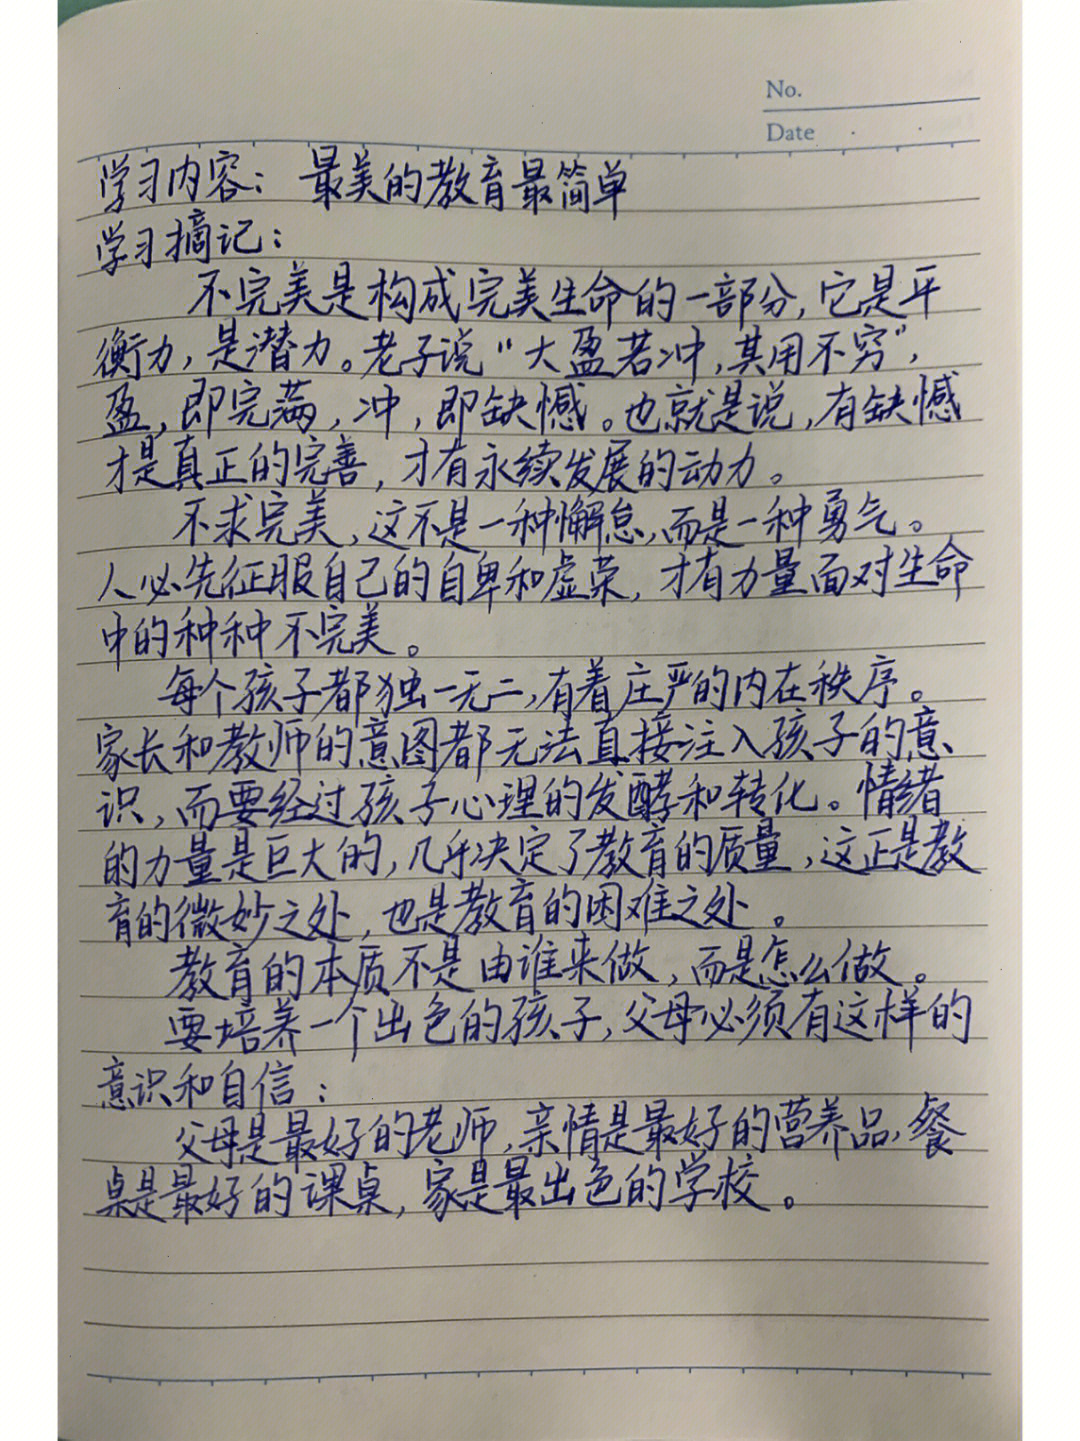 No.
Date
学习内容：最美的教育最简单
学习摘记：
不完美是构成完美生命的一部分，它是平
衡力，是潜力。老子说“大盈若冲，其用不穷”，
盈，即完满，冲，即缺憾。也就是说，有缺憾
才是真正的完善，才有永续发展的动力。
不求完美，这不是一种懈怠，而是一种勇气。
人必先征服自己的自卑和虚荣，才有力量面对生命
中的种种不完美。
每个孩子都独一无二，有着庄严的内在秩序。
家长和教师的意图都无法直接注入孩子的意
识，而要经过孩子心理的发酵和转化。情绪
的力量是巨大的，几乎决定了教育的质量，这正是教
育的微妙之处，也是教育的困难之处。
教育的本质不是由谁来做，而是怎么做。
要培养一个出色的孩子，父母必须有这样的
意识和自信：
父母是最好的老师，亲情是最好的营养品，餐
桌是最好的课桌，家是最出色的学校。